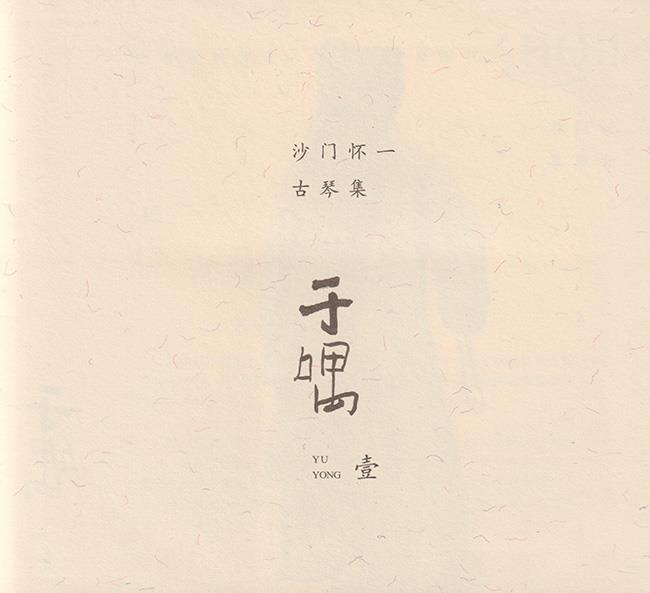 沙门怀一
古琴集
于
喁
YU
YONG
壹